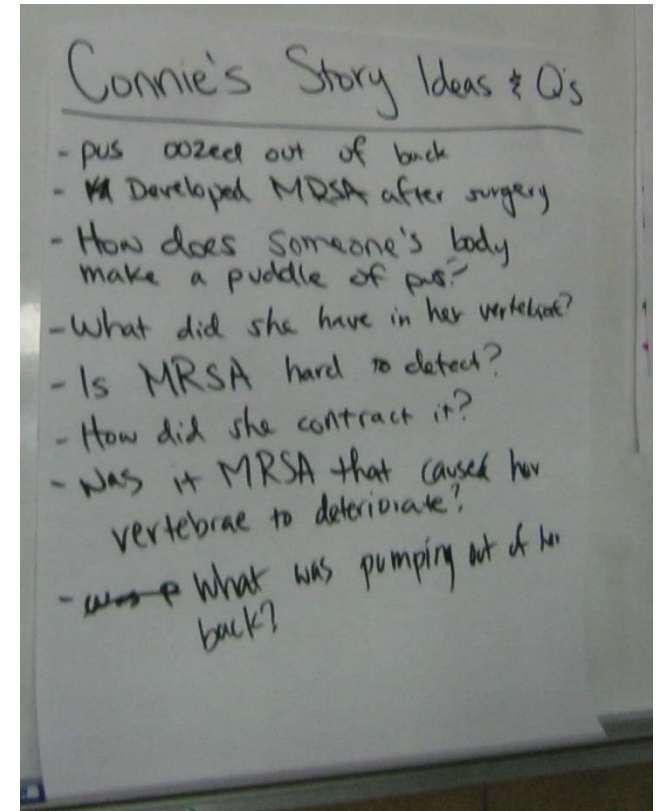 Connie's Story Ideas & Q's
- pus oozed out of back
- Developed MRSA after surgery
- How does someone's body
make a puddle of pus?
- What did she have in her vertebrae?
- Is MRSA hard to detect?
- How did she contract it?
- Was it MRSA that caused her
vertebrae to deteriorate?
- What was pumping out of her
back?